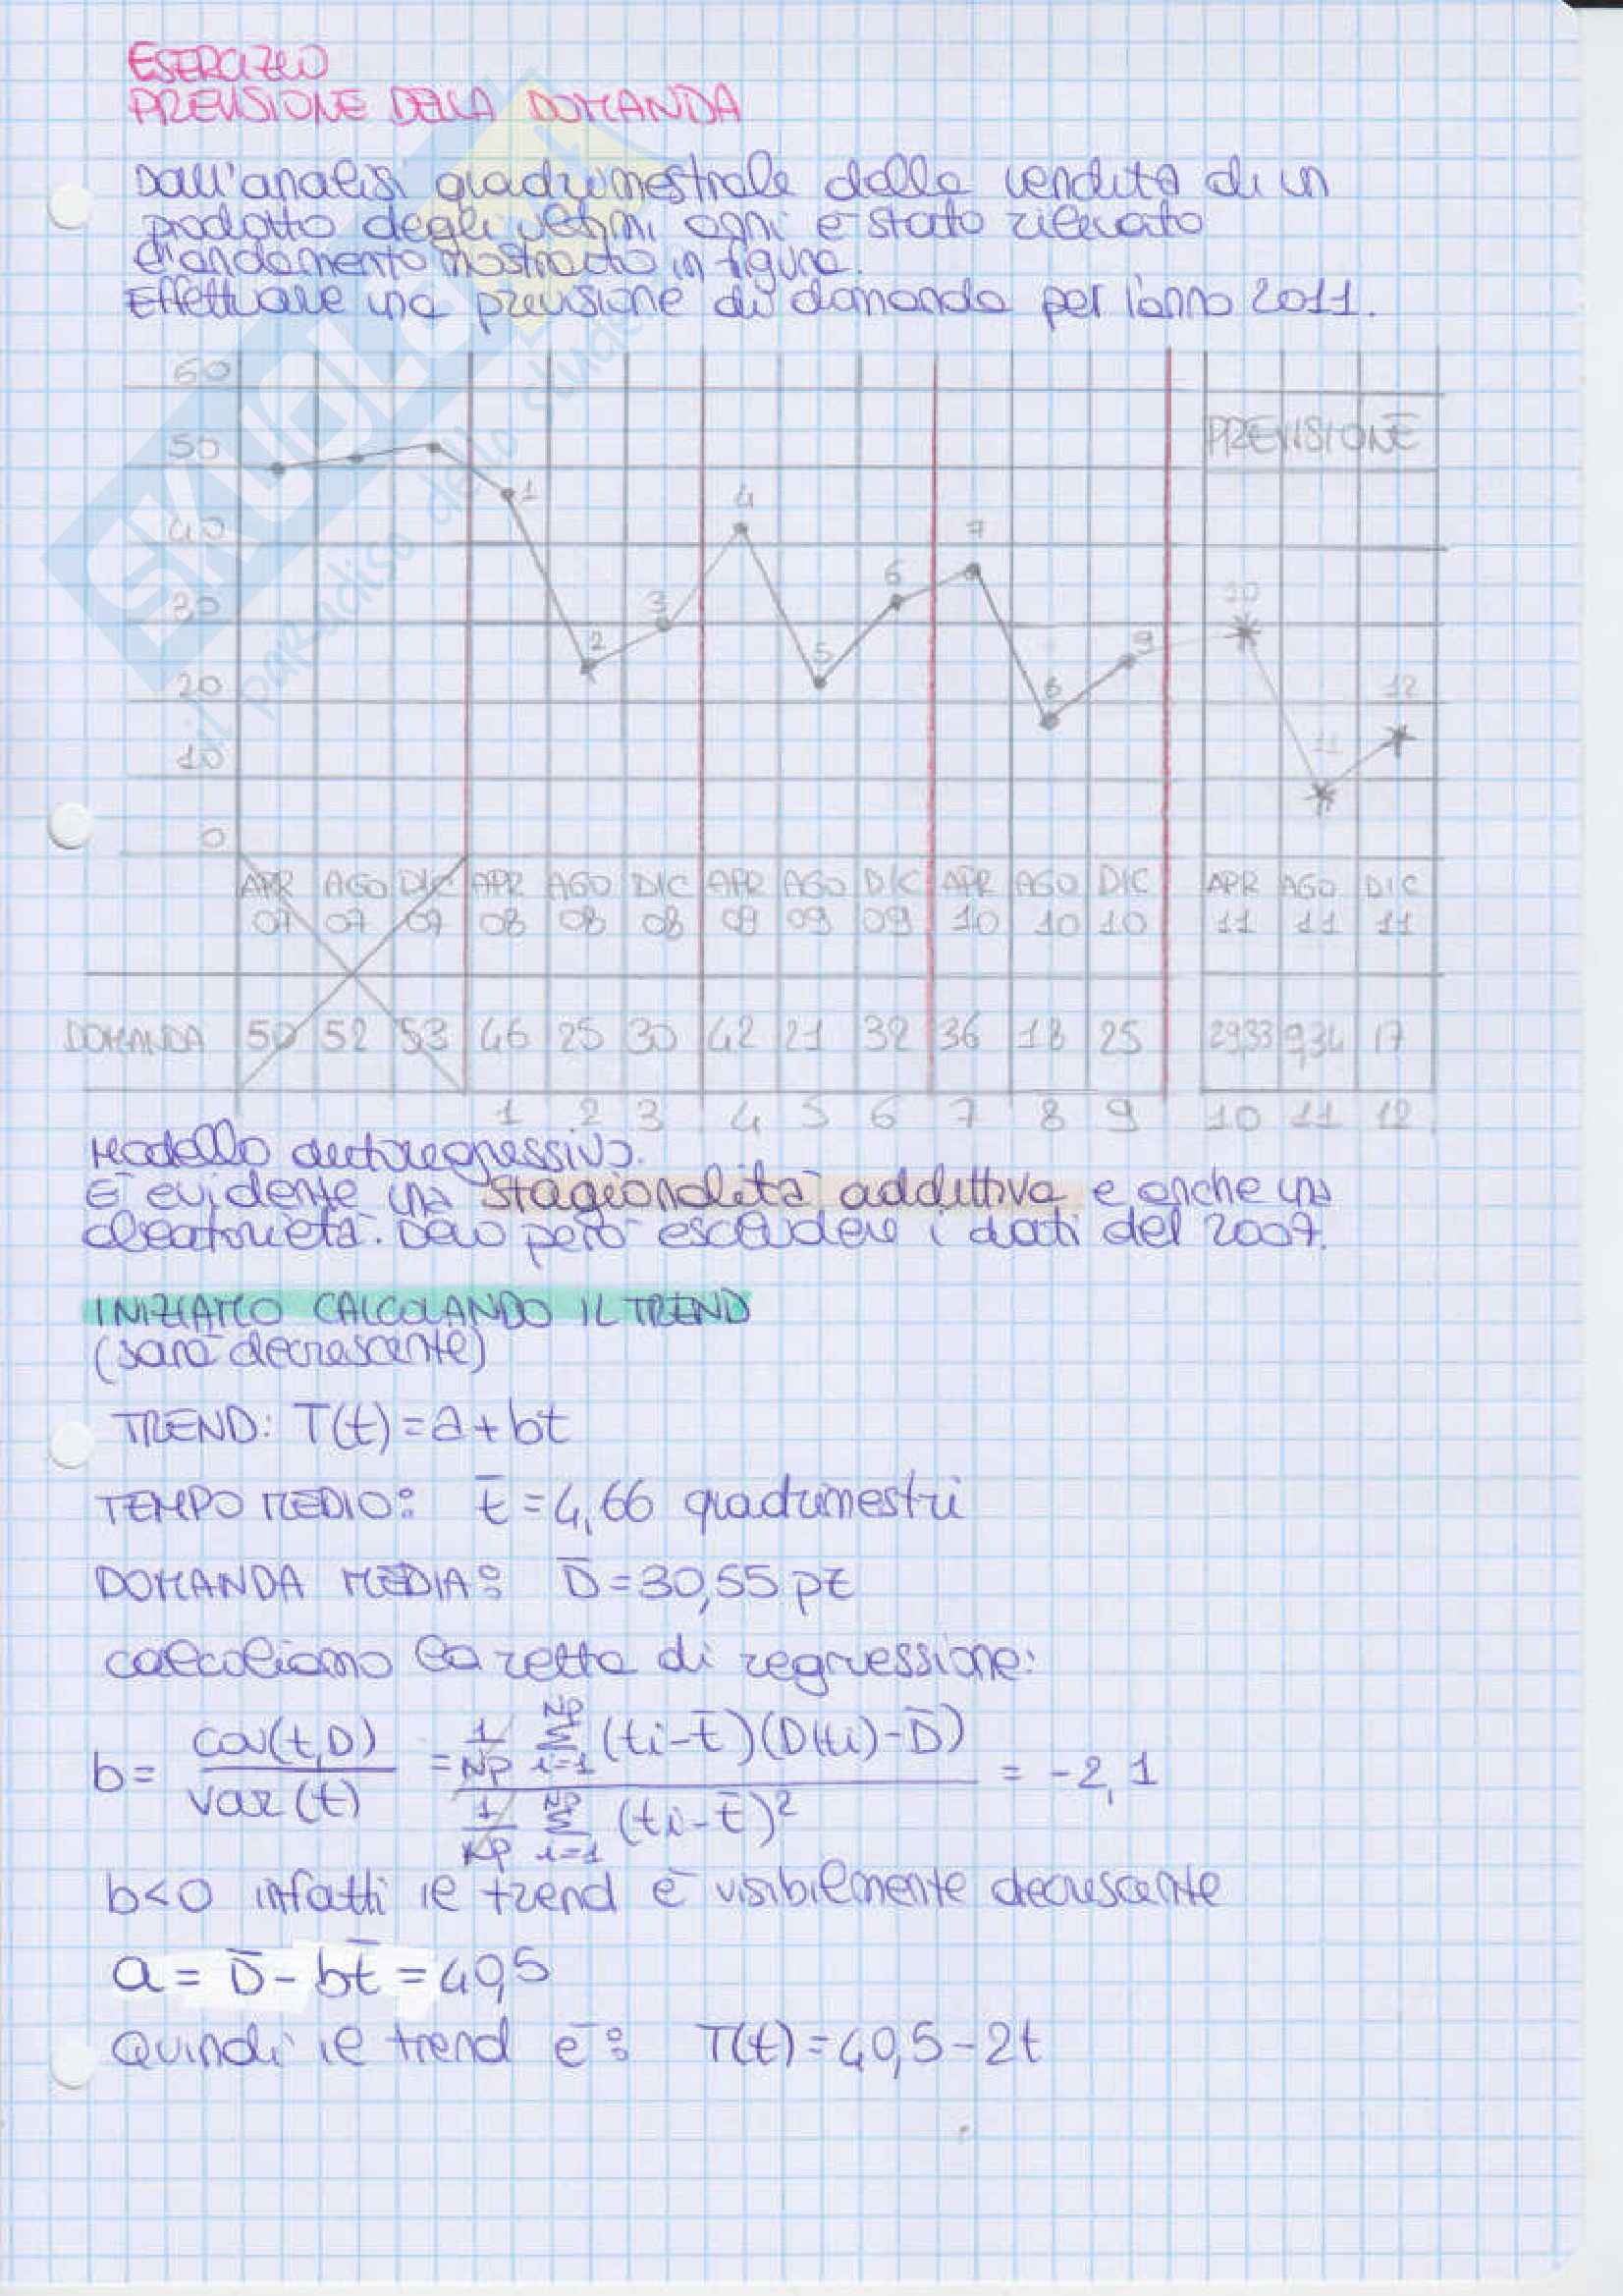 ESERCIZIO
PREVISIONE DELLA DOMANDA
Dall'analisi quadrimestrale delle vendite di un
prodotto degli ultimi anni è stato rilevato
l'andamento mostrato in figura.
Effettuare una previsione di domanda per l'anno 2011.
60
50
40
30
20
10
0
PREVISIONE
1 2 3 4 5 6 7 8 9 10 11 12
APR AGO DIC APR AGO DIC APR AGO DIC APR AGO DIC APR AGO DIC
07 07 07 08 08 08 09 09 09 10 10 10 11 11 11
DOMANDA 50 52 53 46 25 30 42 21 32 36 18 25 29,33 9,34 17
1 2 3 4 5 6 7 8 9 10 11 12
Modello autoregressivo.
È evidente una stagionalità addittiva e anche una
aleatorietà. Devo però escludere i dati del 2007.
INIZIAMO CALCOLANDO IL TREND
(sarà decrescente)
TREND: T(t)=a+bt
TEMPO MEDIO: t̄=4,66 quadrimestri
DOMANDA MEDIA: D̄=30,55 pz
calcoliamo la retta di regressione:
b= cov(t,D) / var(t) = 1/Np Σ i=1 Np (ti-t̄)(D(ti)-D̄) / 1/Np Σ i=1 Np (ti-t̄)² = -2,1
b<0 infatti il trend è visibilmente decrescente
a = D̄ - bt̄ = 40,5
Quindi il trend è: T(t)=40,5-2t
SKUOLA.it
il paradiso dello studente